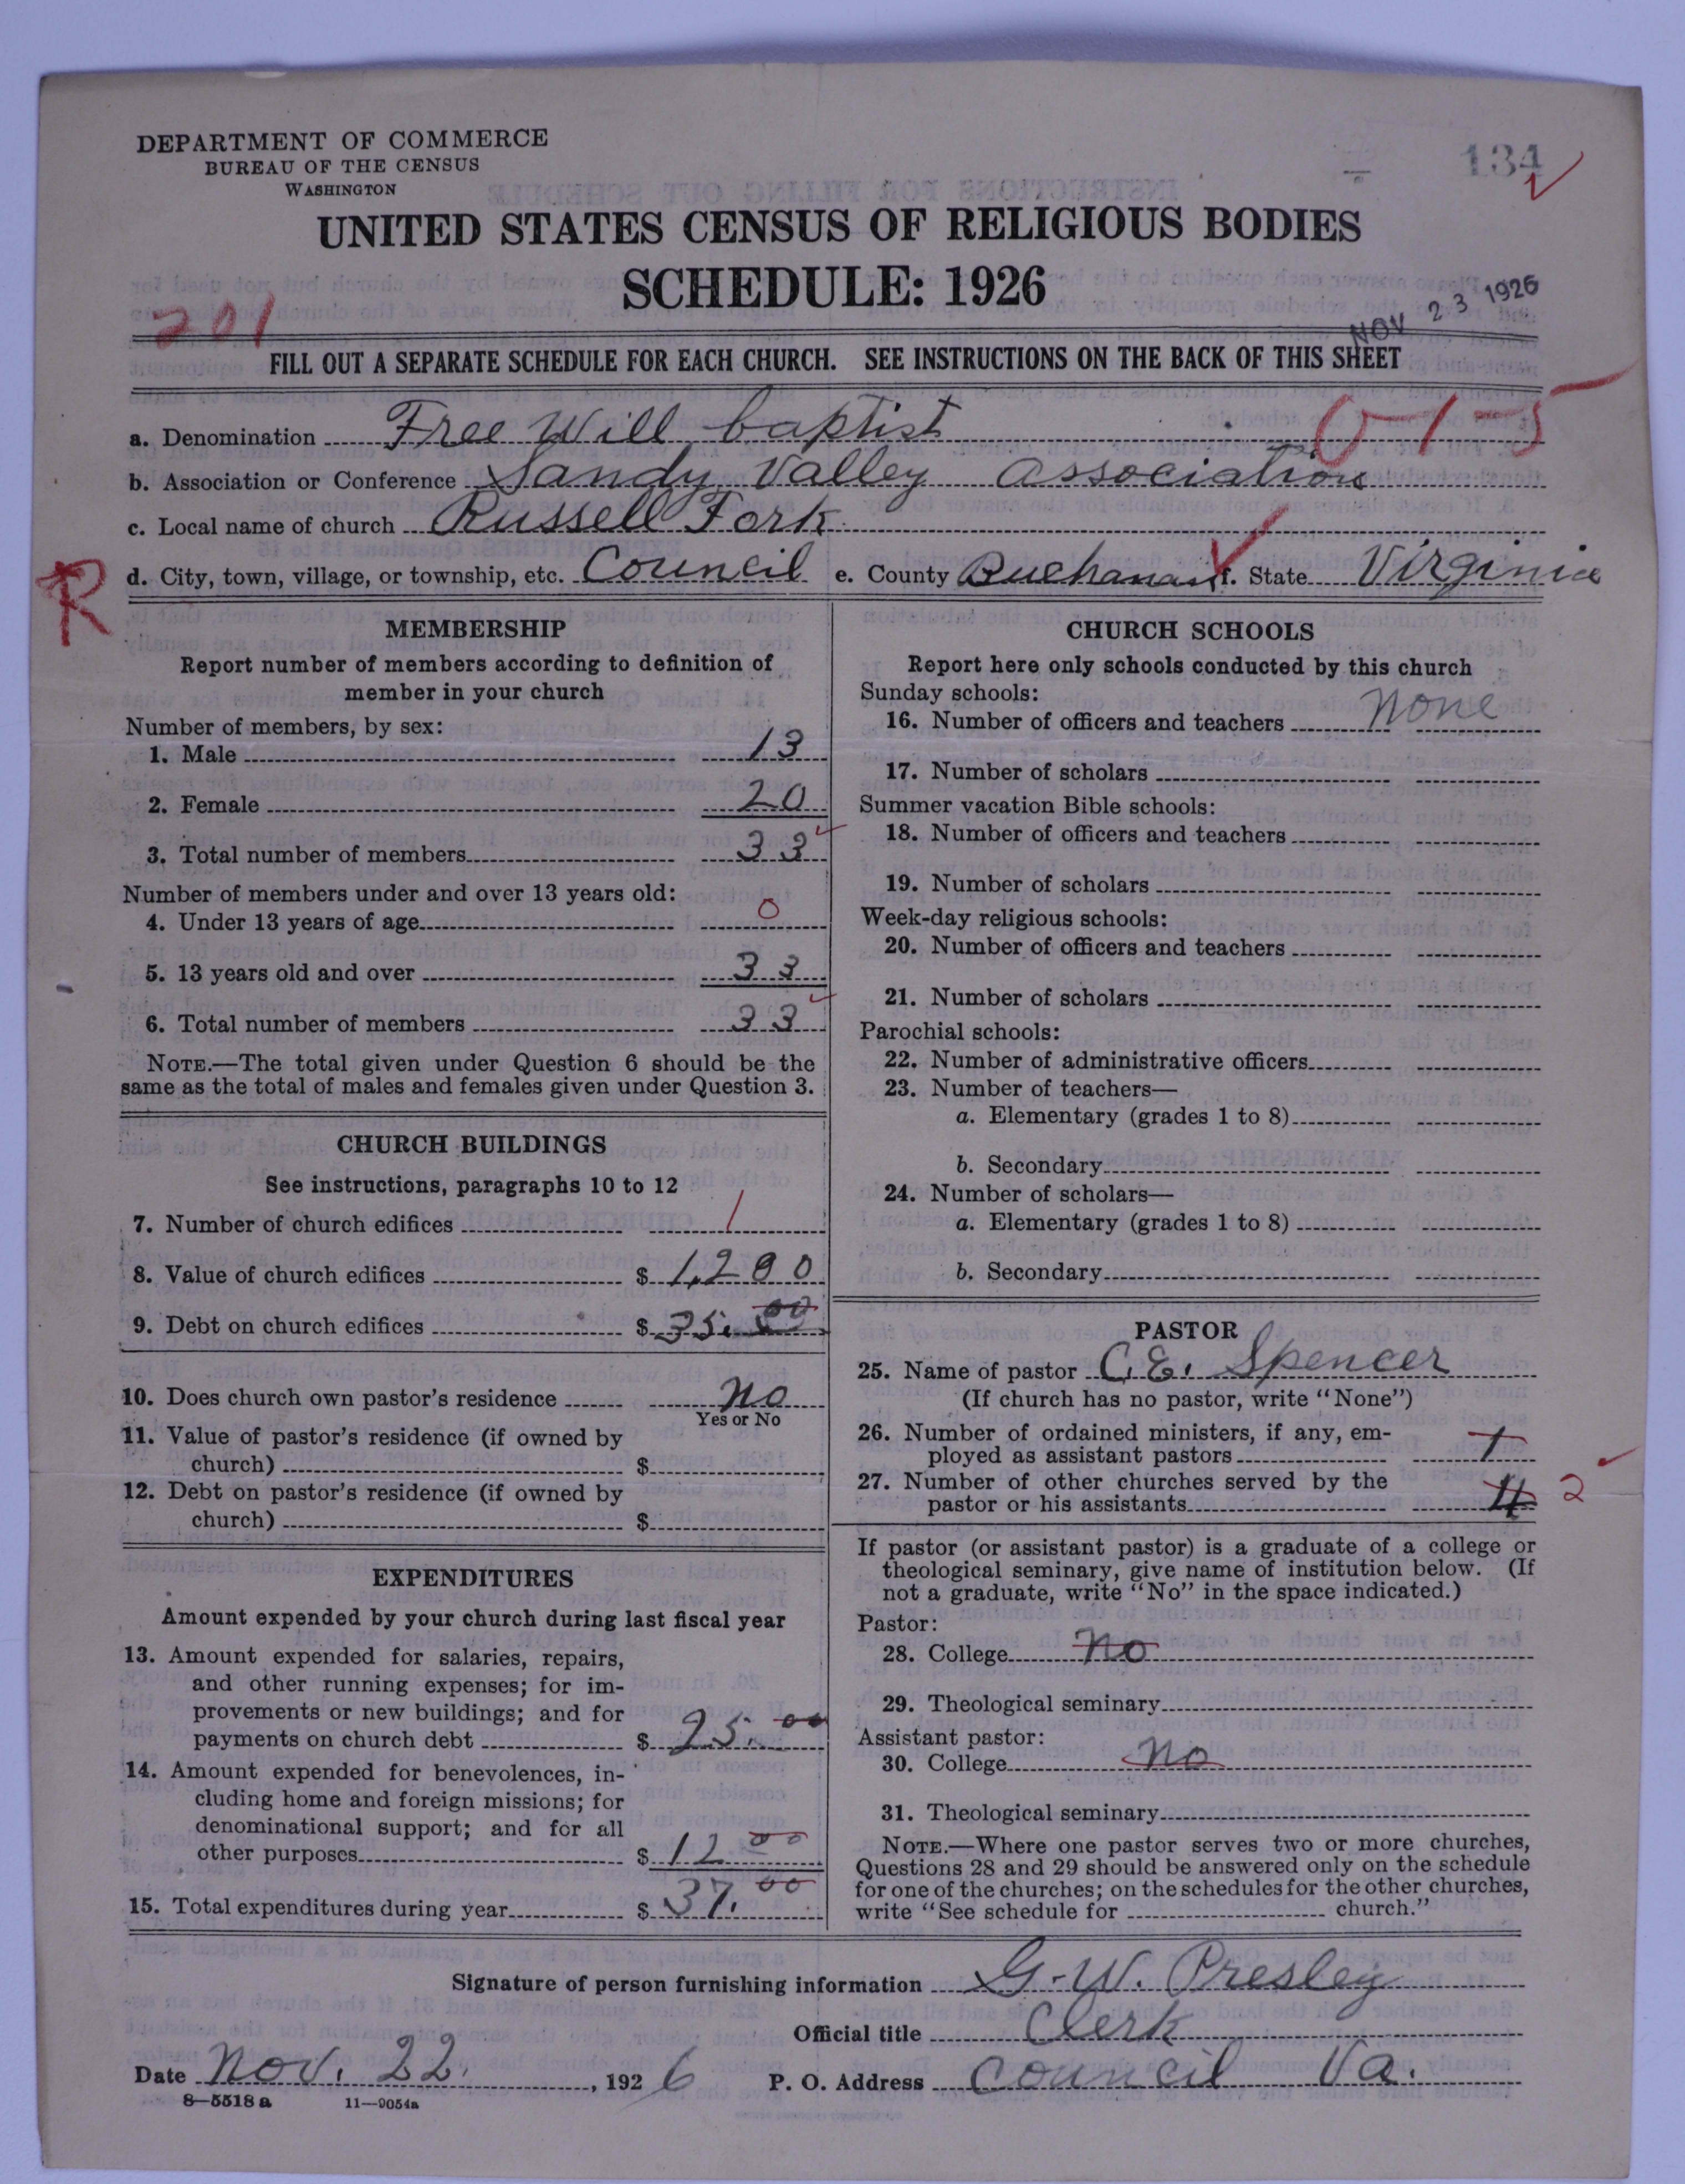 DEPARTMENT OF COMMERCE
BUREAU OF THE CENSUS
WASHINGTON
134
UNITED STATES CENSUS OF RELIGIOUS BODIES
SCHEDULE: 1926
NOV 23 1926
201
FILL OUT A SEPARATE SCHEDULE FOR EACH CHURCH. SEE INSTRUCTIONS ON THE BACK OF THIS SHEET
0-1-5
a. Denomination Free Will baptist
b. Association or Conference Sandy Valley Association
c. Local name of church Russell Fork
R
d. City, town, village, or township, etc. Council e. County Buchanan f. State Virginia
MEMBERSHIP
Report number of members according to definition of
member in your church
Number of members, by sex:
1. Male 13
2. Female 20
3. Total number of members 33
Number of members under and over 13 years old:
4. Under 13 years of age 0
5. 13 years old and over 33
6. Total number of members 33
NOTE.—The total given under Question 6 should be the
same as the total of males and females given under Question 3.
CHURCH BUILDINGS
See instructions, paragraphs 10 to 12
7. Number of church edifices 1
8. Value of church edifices $ 1,200
9. Debt on church edifices $ 35.00
10. Does church own pastor's residence no
Yes or No
11. Value of pastor's residence (if owned by
church) $
12. Debt on pastor's residence (if owned by
church) $
EXPENDITURES
Amount expended by your church during last fiscal year
13. Amount expended for salaries, repairs,
and other running expenses; for im-
provements or new buildings; and for
payments on church debt $ 25.00
14. Amount expended for benevolences, in-
cluding home and foreign missions; for
denominational support; and for all
other purposes $ 12 00
15. Total expenditures during year $ 37.00
CHURCH SCHOOLS
Report here only schools conducted by this church
Sunday schools:
16. Number of officers and teachers none
17. Number of scholars
Summer vacation Bible schools:
18. Number of officers and teachers
19. Number of scholars
Week-day religious schools:
20. Number of officers and teachers
21. Number of scholars
Parochial schools:
22. Number of administrative officers
23. Number of teachers—
a. Elementary (grades 1 to 8)
b. Secondary
24. Number of scholars—
a. Elementary (grades 1 to 8)
b. Secondary
PASTOR
25. Name of pastor C. E. Spencer
(If church has no pastor, write "None")
26. Number of ordained ministers, if any, em-
ployed as assistant pastors 1
27. Number of other churches served by the
pastor or his assistants 4 2
If pastor (or assistant pastor) is a graduate of a college or
theological seminary, give name of institution below. (If
not a graduate, write "No" in the space indicated.)
Pastor:
28. College no
29. Theological seminary
Assistant pastor:
30. College no
31. Theological seminary
NOTE.—Where one pastor serves two or more churches,
Questions 28 and 29 should be answered only on the schedule
for one of the churches; on the schedules for the other churches,
write "See schedule for church."
Signature of person furnishing information G. W. Presley
Official title Clerk
Date Nov. 22, 1926 P. O. Address Council Va.
8—5518a 11—9054a